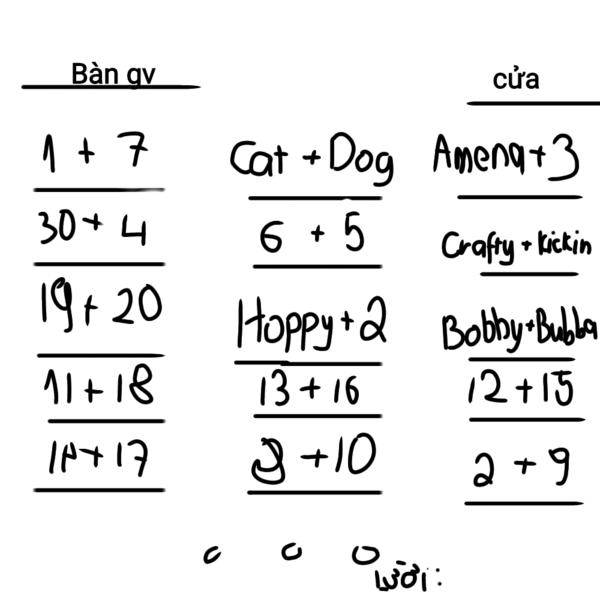 Bàn gv
cửa
1 + 7
Cat + Dog
Amena + 3
30 + 4
6 + 5
Crafty + Kickin
19 + 20
Hoppy + 2
Bobby + Bubba
11 + 18
13 + 16
12 + 15
+ 17
+ 10
2 + 9
Lười: